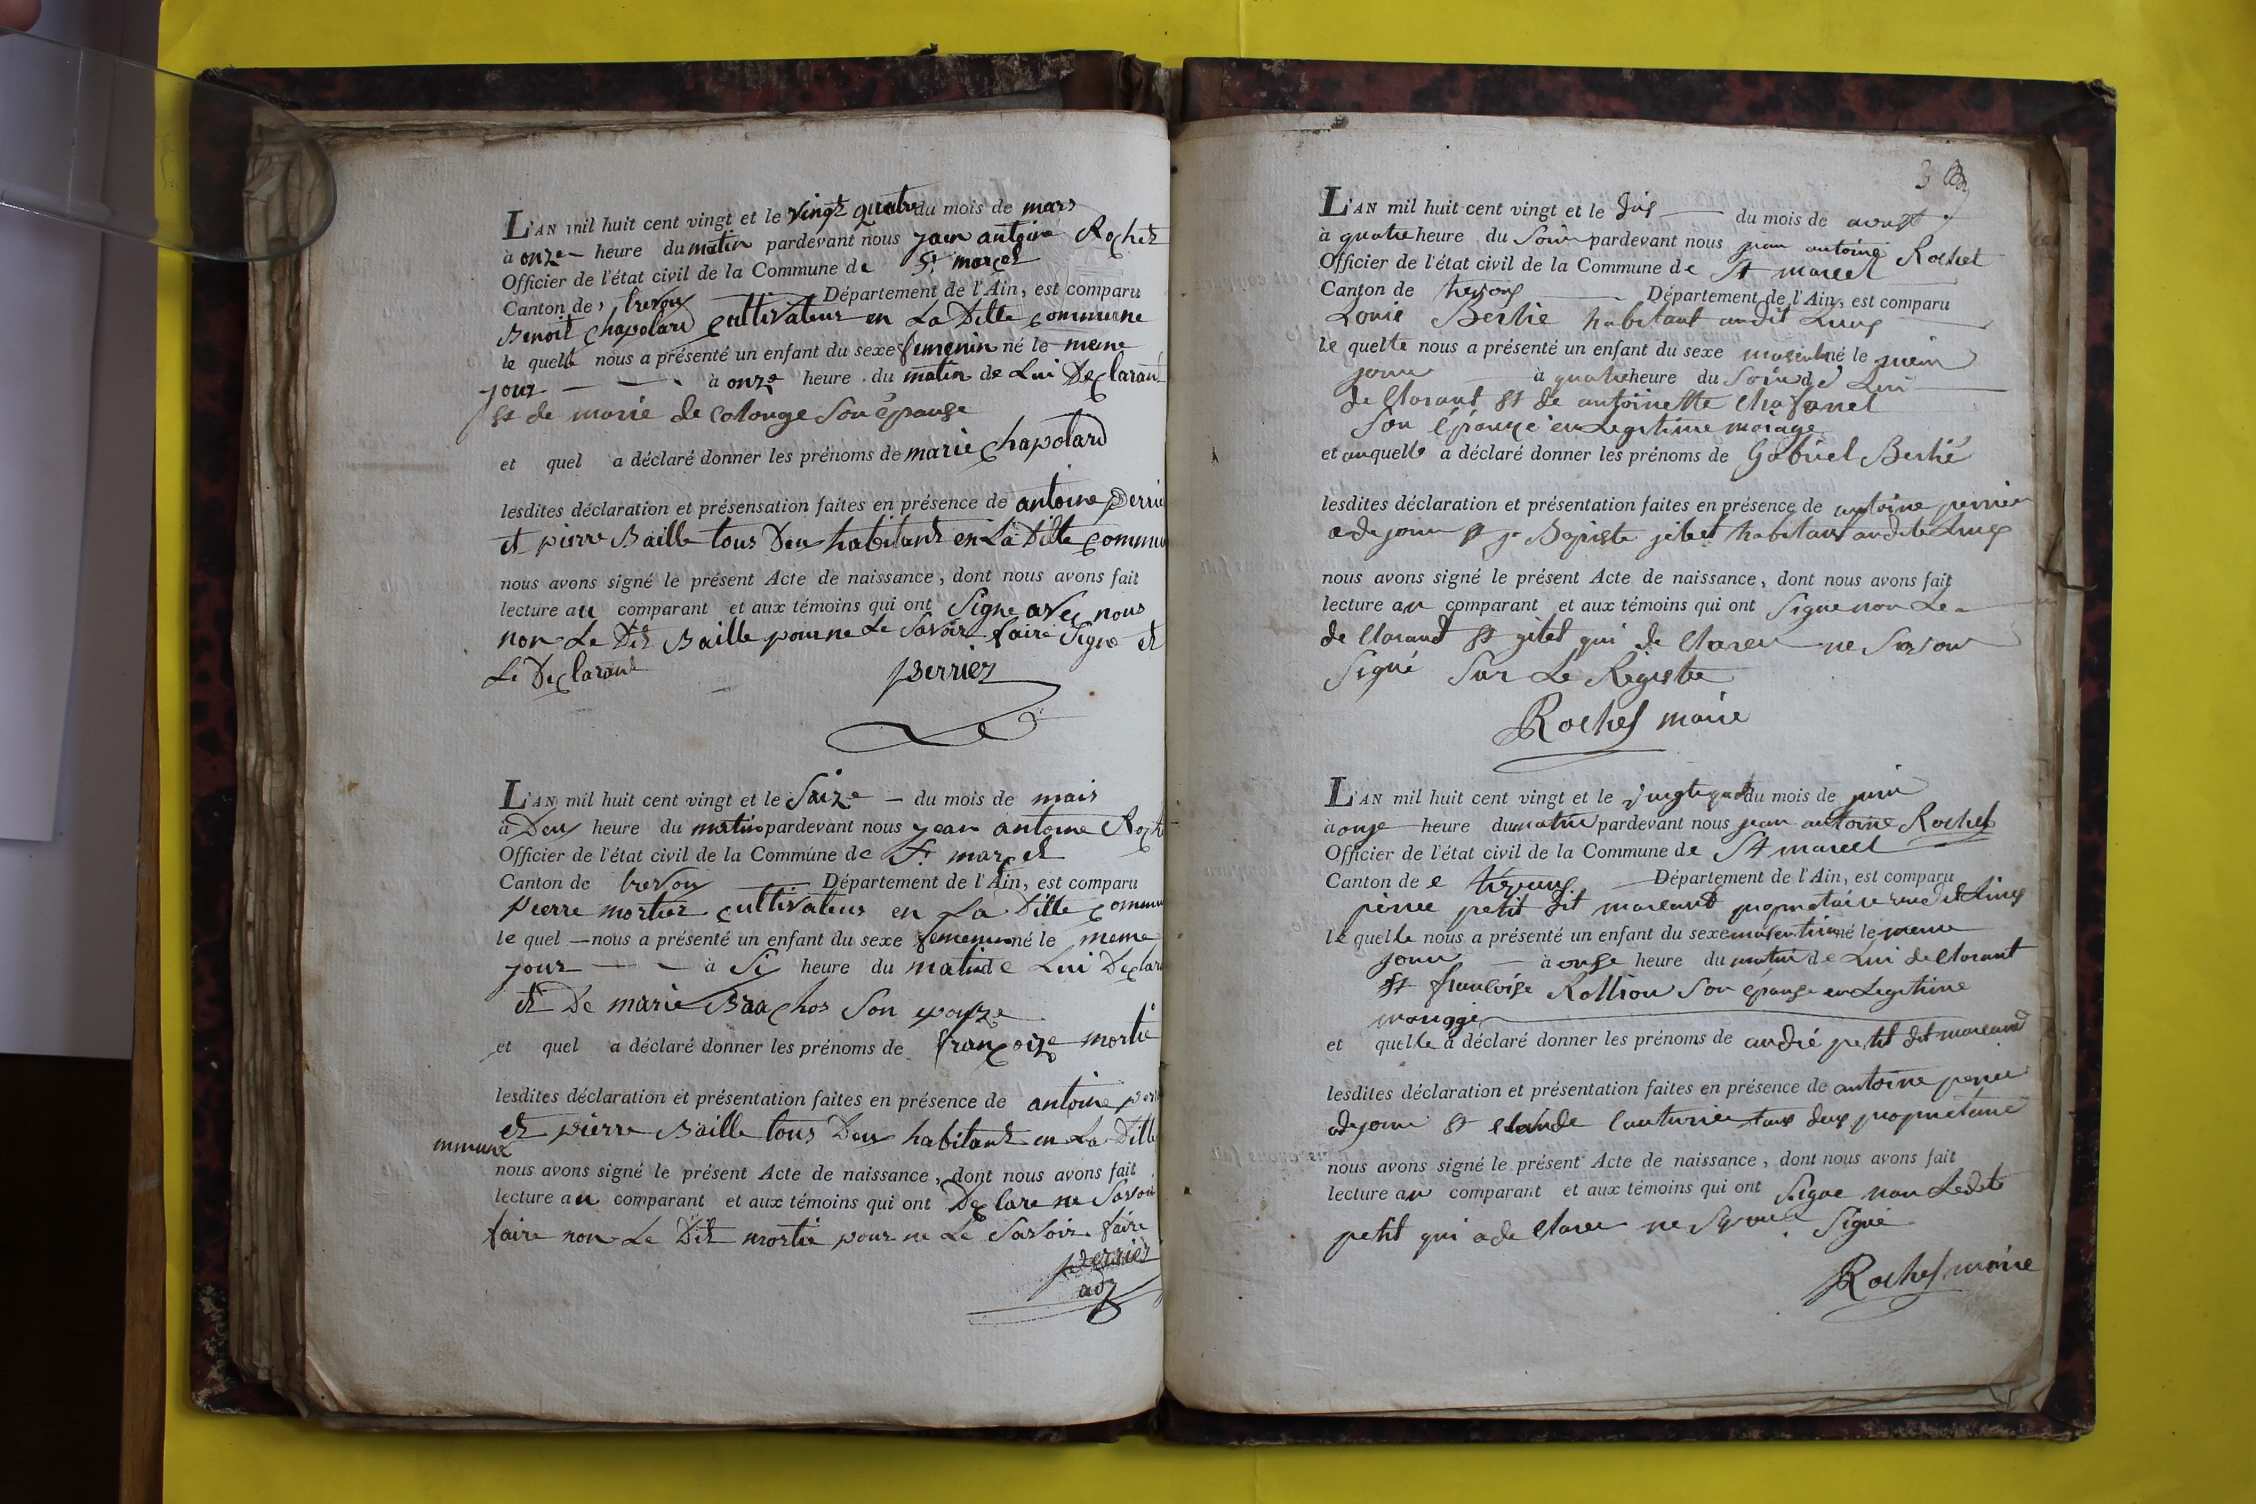 L'AN mil huit cent vingt et le vingt quatre du mois de mars
à onze heure du matin pardevant nous jean antoine Rochet
Officier de l'état civil de la Commune de St marcel
Canton de trevoux Département de l'Ain, est comparu
Benoit chapolard cultivateur en La Ditte commune
le quel nous a présenté un enfant du sexe femenin né le meme
jour à onze heure du matin de Lui Declarant
et de marie de colonge Son épouse
et quel a déclaré donner les prénoms de marie chapolard
lesdites déclaration et présensation faites en présence de antoine perrie
et pierre Baille tous Deu habitant en La Ditte commu
nous avons signé le présent Acte de naissance, dont nous avons fait
lecture au comparant et aux témoins qui ont Signe avec nous
non Le Dit Baille pour ne Le Savoir faire Signe et
Le Declarant perrier
L'AN mil huit cent vingt et le Saize du mois de mars
à Deux heure du matin pardevant nous jean antoine Roch
Officier de l'état civil de la Commune de St marcel
Canton de trevoux Département de l'Ain, est comparu
pierre mortier cultivateur en La Ditte commu
le quel nous a présenté un enfant du sexe femenin né le meme
jour à Si heure du matin de Lui Declar
et De marie Brachos Son epouze
et quel a déclaré donner les prénoms de françoize mortié
lesdites déclaration et présentation faites en présence de antoine per
et pierre Baille tous Deu habitant en La Ditte
mmune
nous avons signé le présent Acte de naissance, dont nous avons fait
lecture au comparant et aux témoins qui ont Declare ne Savoir
faire non Le Dit mortie pour ne Le Savoir faire
perrier
adj
L'AN mil huit cent vingt et le du mois de
à quatre heure du Soir pardevant nous jean antoine Rochet
Officier de l'état civil de la Commune de St marcel
Canton de trevoux Département de l'Ain, est comparu
Louis Berlié habitant audit Lieux
le quelle nous a présenté un enfant du sexe masculin né le
jour à quatre heure du Soir de Lui
declarant et de antoinette
Son épouze en Legitime mariage
et auquelle a déclaré donner les prénoms de Gabriel Berlié
lesdites déclaration et présentation faites en présence de antoine perrier
adejoin et jn Bapiste jilet habitant audite Lieux
nous avons signé le présent Acte de naissance, dont nous avons fait
lecture au comparant et aux témoins qui ont Signe non Le
declarant et gilet qui declarer ne Savoir
Signé Sur Le Registre
Rochet maire
L'AN mil huit cent vingt et le du mois de juin
à onze heure du matin pardevant nous jean antoine Rochet
Officier de l'état civil de la Commune de St marcel
Canton de Département de l'Ain, est comparu
pierre petit dit marcand propriétaire audit Lieux
le quelle nous a présenté un enfant du sexe né le meme
jour à onze heure du matin de Lui declarant
et françoise Rollion Son épouse en Legitime
mariage
et quelle a déclaré donner les prénoms de andré petit dit marcand
lesdites déclaration et présentation faites en présence de antoine perrier
adejoin et claude couturier tous deux proprietaire
nous avons signé le présent Acte de naissance, dont nous avons fait
lecture au comparant et aux témoins qui ont Signe non Ledit
petit qui a declarer ne Signé
Rochet maire